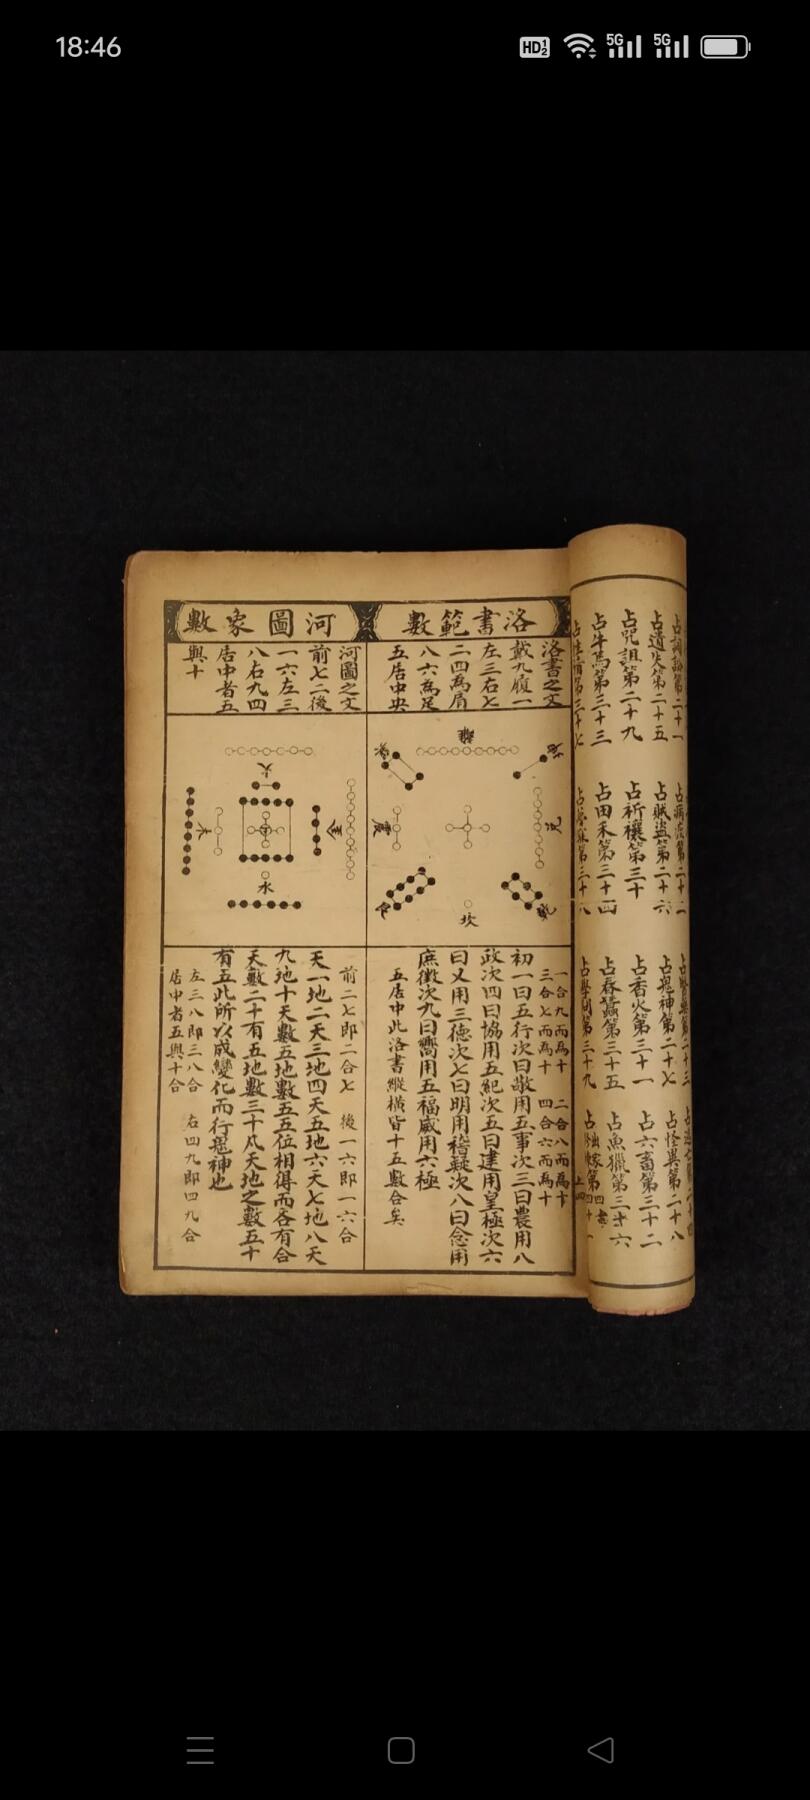 18:46
HD 1 2
5G
5G
占詞訟第二十一
占遺失第二十五
占咒詛第二十九
占牛馬第三十三
占賊盜第二十六
占祈禳第三十
占田禾第三十四
占鬼神第二十七
占香火第三十一
占春蠶第三十五
占學問第三十九
占怪異第二十八
占六畜第三十二
占魚獵第三十六
洛書範數
洛書之文
戴九履一
左三右七
二四為肩
八六為足
五居中央
離
坤
巽
震
兌
艮
乾
坎
一合九而為十 二合八而為十
三合七而為十 四合六而為十
初一曰五行次曰敬用五事次三曰農用八
政次四曰協用五紀次五曰建用皇極次六
曰乂用三德次七曰明用稽疑次八曰念用
庶徵次九曰嚮用五福威用六極
五居中此洛書縱橫皆十五數合矣
河圖象數
河圖之文
前七二後
一六左三
八右九四
居中者五
與十
火
木
金
水
前二七即二合七 後一六即一六合
天一地二天三地四天五地六天七地八天
九地十天數五地數五五位相得而各有合
天數二十有五地數三十凡天地之數五十
有五此所以成變化而行鬼神也
左三八即三八合 右四九即四九合
居中者五與十合